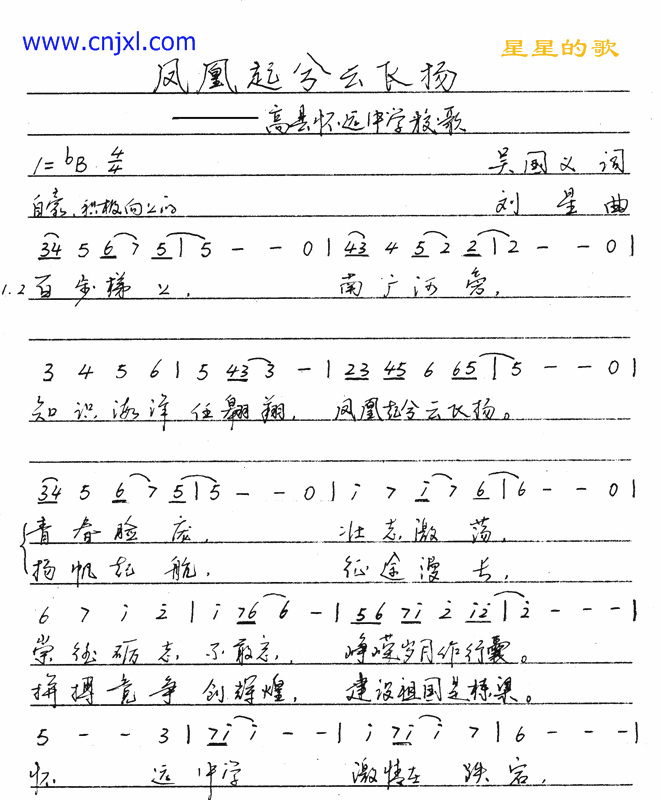 www.cnjxl.com
星星的歌
凤凰起兮云飞扬
——高县怀远中学校歌
1=bB 4/4
吴国义 词
自豪、积极向上的
刘星 曲
34 5 6 7 5 | 5 - - 0 | 43 4 5 2 2 | 2 - - 0 |
1.2 百步梯上, 南广河旁,
3 4 5 6 | 5 43 3 - | 23 45 6 65 | 5 - - 0 |
知识海洋任翱翔, 凤凰起兮云飞扬。
34 5 6 7 5 | 5 - - 0 | i 7 i 7 6 | 6 - - 0 |
青春脸庞, 壮志激荡,
扬帆起航, 征途漫长,
6 7 i 2 | i 76 6 - | 56 7i 2 i2 | 2 - - - |
崇德砺志不敢忘, 峥嵘岁月作行囊。
拼搏竞争创辉煌, 建设祖国是栋梁。
5 - - 3 | 7i i - - | i 7i i 7 | 6 - - - |
怀远中学 激情在跌宕,